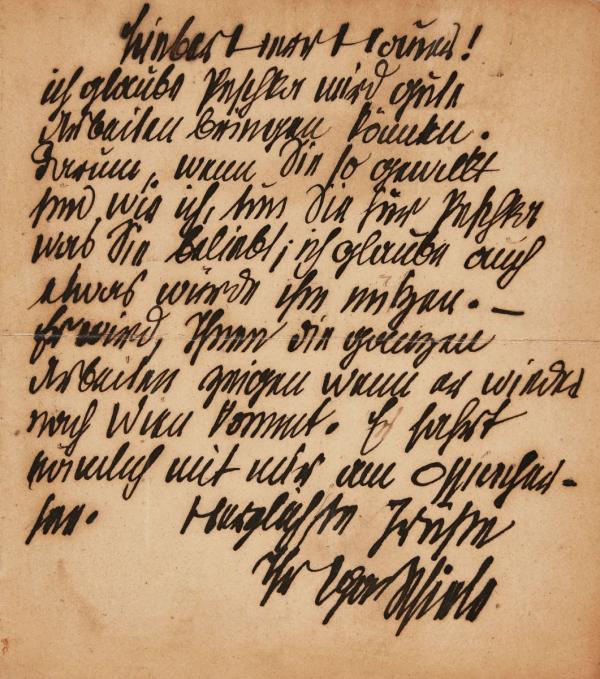 Lieber Herr Hauer!
ich glaube Peschka wird gute
Arbeiten bringen können.
Darum, wenn Sie so gewillt
sind, wie ich, tun Sie für Peschka
was Sie beliebt; ich glaube auch
etwas würde ihm nützen. —
Er wird, Ihnen die ganzen
Arbeiten zeigen wenn er wieder
nach Wien kommt. Er fährt
nämlich mit mir am Ossiacher-
see. Herzlichste Grüße
Ihr Egon Schiele